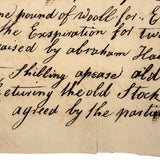 one pound of Wooll for. E
the Enspiration for tw
raised by abraham Ha
Shilling apease old
Returing the old Stock
agreed by the partie